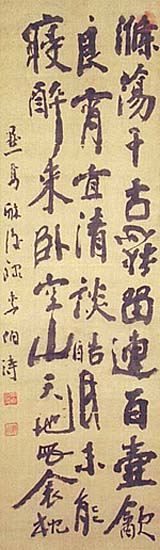 滌蕩千古愁留連百壺飲
良宵宜清談皓月未能
寢醉来臥空山天地即衾枕